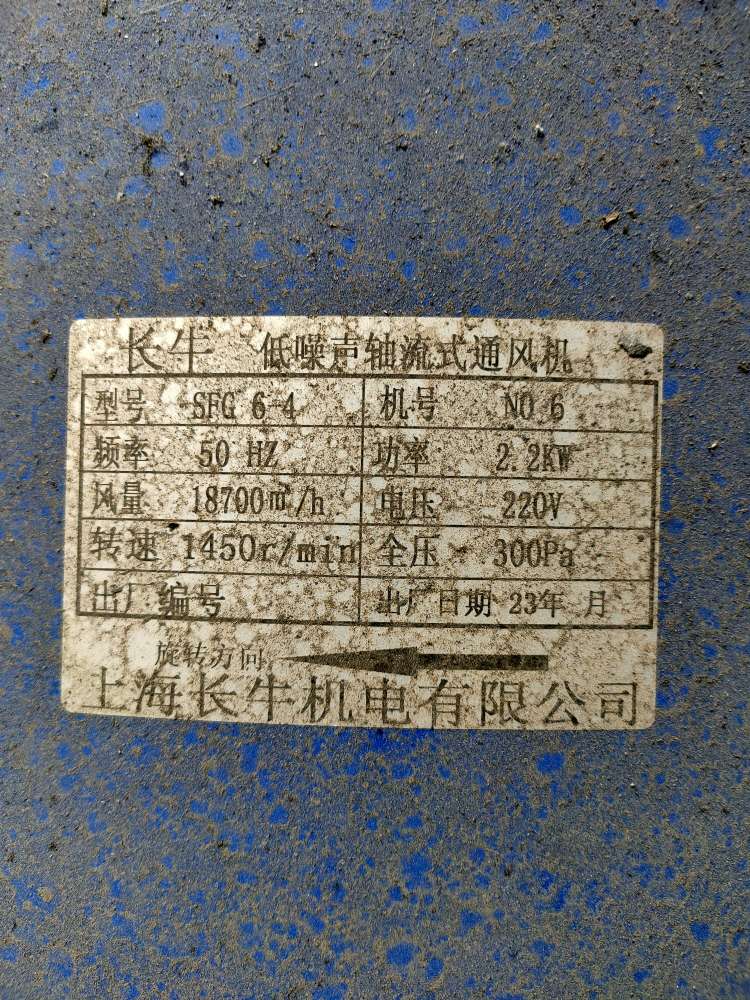 长牛 低噪声轴流式通风机
型号 SFG 6-4 机号 NO 6
频率 50 HZ 功率 2.2KW
风量 18700m³/h 电压 220V
转速 1450r/min 全压 300Pa
出厂编号 出厂日期 23年 月
旋转方向
上海长牛机电有限公司